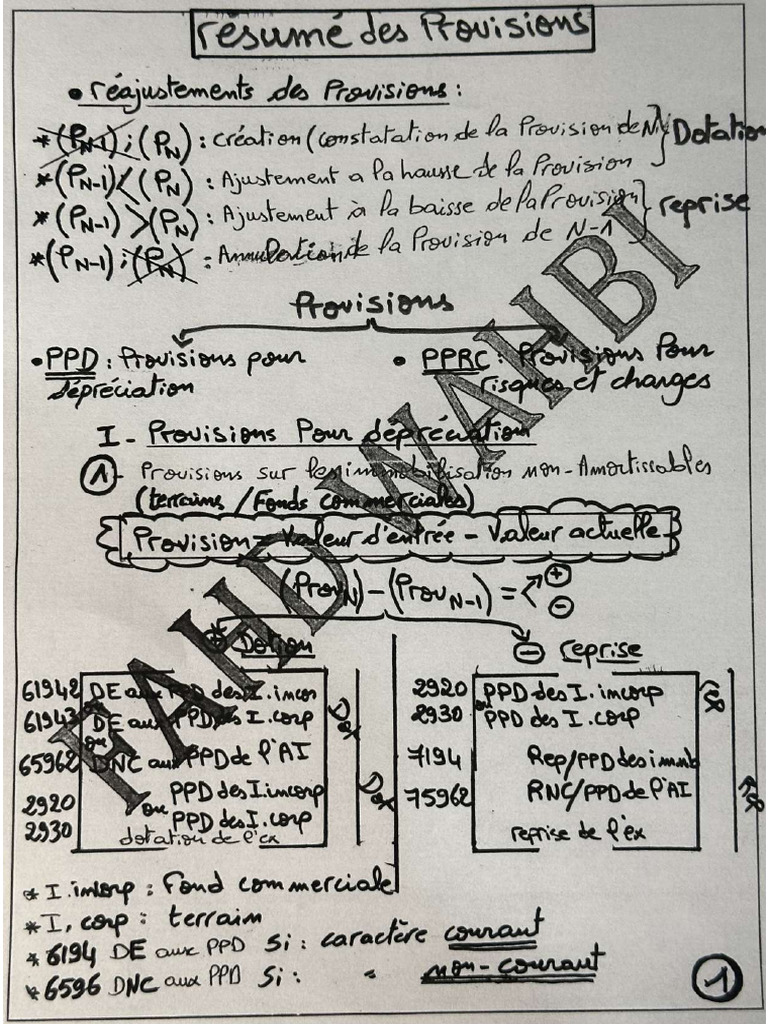 résumé des Provisions
• réajustements des Provisions :
*(PN-1) ; (PN) : création (constatation de la Provision de N) } Dotation
*(PN-1) < (PN) : Ajustement a la hausse de la Provision
*(PN-1) > (PN) : Ajustement à la baisse de la Provision } reprise
*(PN-1) ; (PN) : Annulation de la Provision de N-1
Provisions
• PPD : Provisions pour dépréciation
• PPRC : Provisions Pour risques et charges
I - Provisions Pour dépréciation
1 - Provisions sur les immobilisation non-Amortissables
(terrains / Fonds commerciales)
Provision = Valeur d'entrée - Valeur actuelle
(ProvN) - (ProvN-1) = < + -
+ Dotion
61942 DE aux PPD des I. incor
ou
61943 DE aux PPD des I. corp
ou
65962 DNC aux PPD de l'AI
2920 PPD des I. incorp
ou
2930 PPD des I. corp
dotation de l'ex
Dox
Dox
- reprise
2920 PPD des I. incorp
ou
2930 PPD des I. corp
7194 Rep/PPD des immb
75962 RNC/PPD de l'AI
reprise de l'ex
* I. incorp : Fond commerciale
* I, corp : terrain
* 6194 DE aux PPD Si : caractère courant
* 6596 DNC aux PPD Si : " non-courant
1
FAHD WAHBI